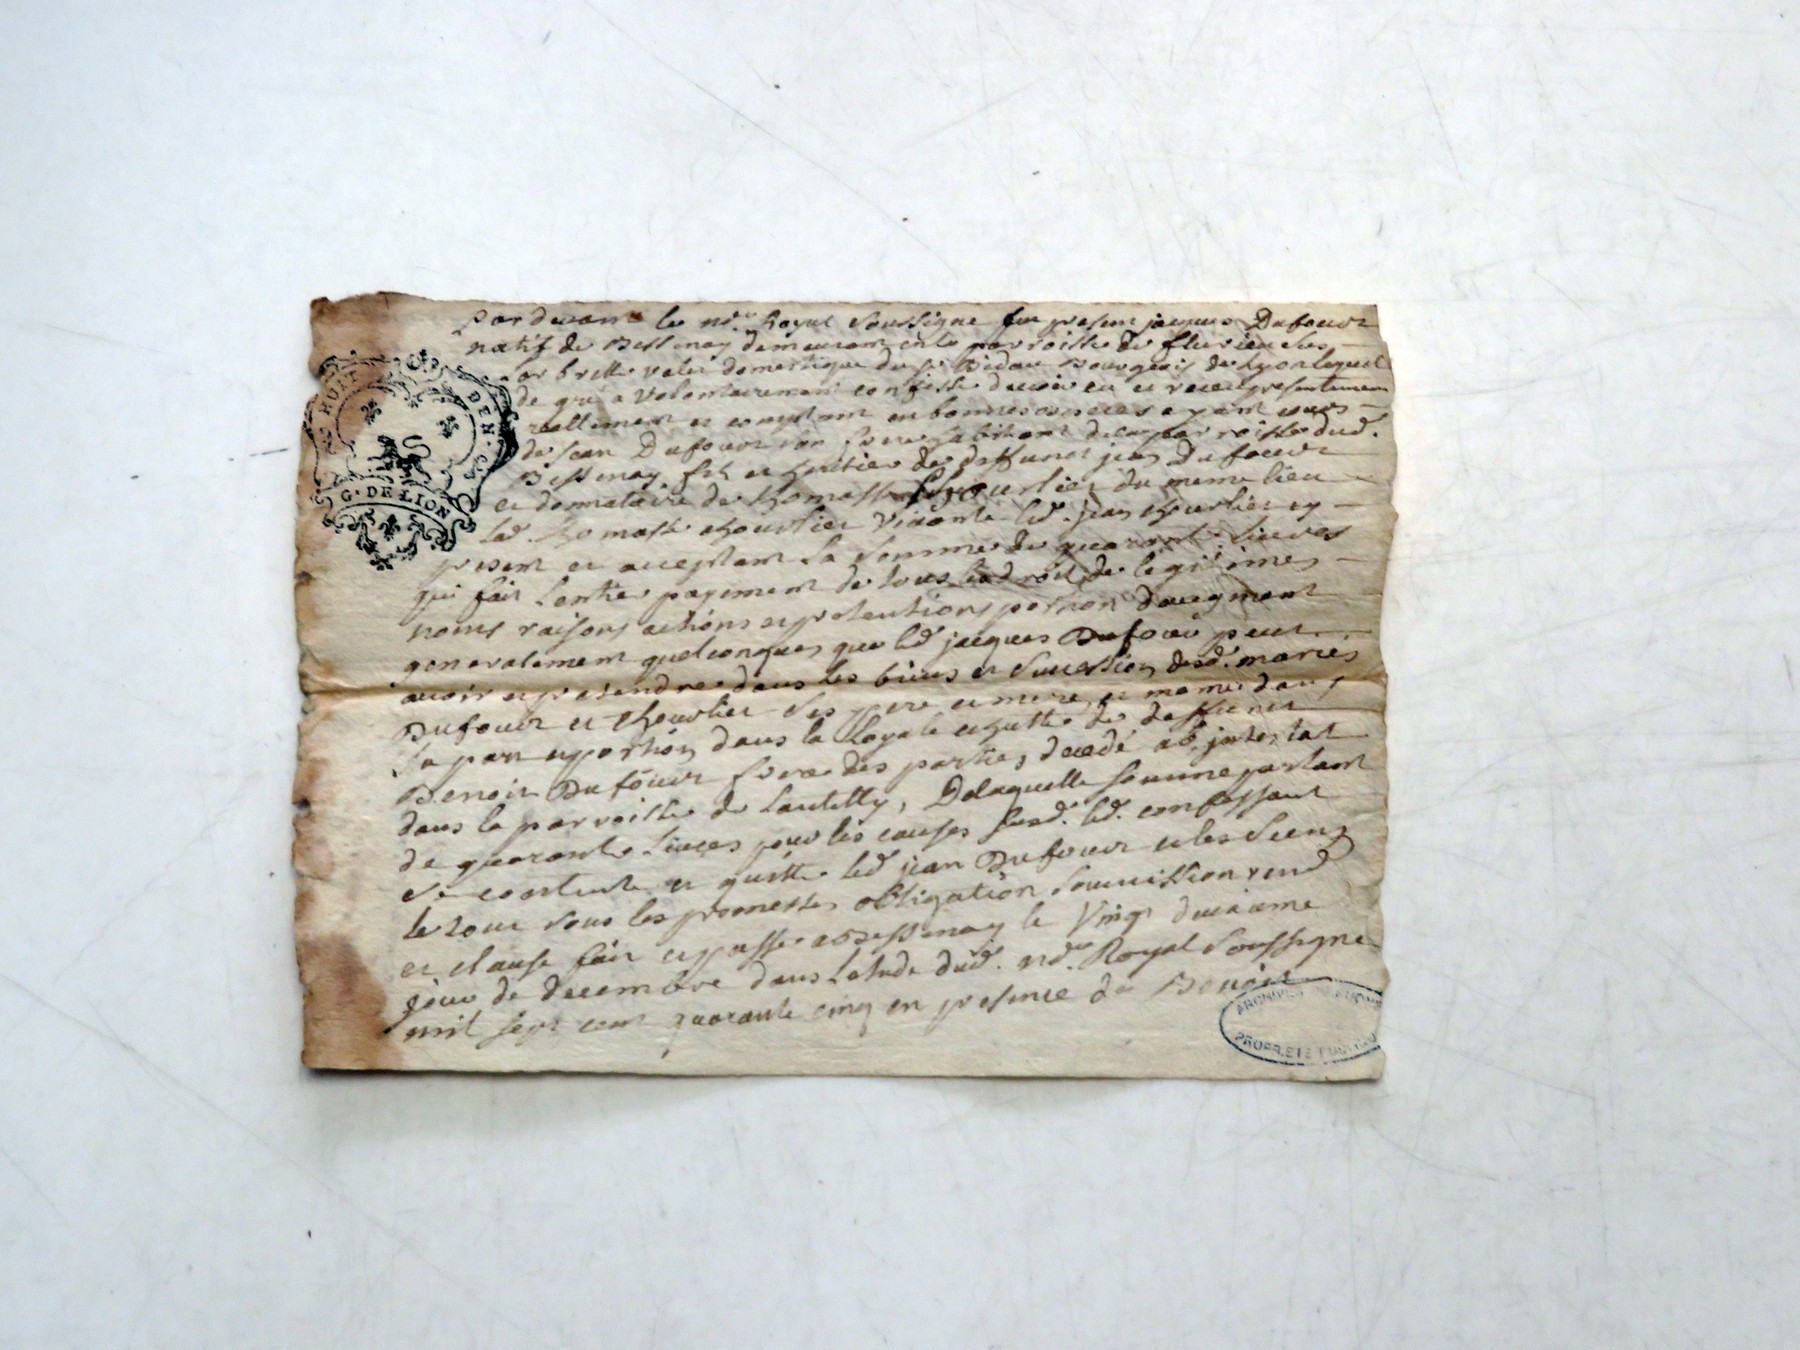 HUIT DEN.S
G. DE LION
par devant le no.re Royal soussigné fut present jacques Dufour
natif de Bessenay demeurant en la parroisse de fleurieu sur
arbresle valet domestique du sr Bourgeois de Lyon lequel
de gré a volontairement confessé davoir eu et receu presentement
reellement et comptant en bonnes especes ayant cours
de Jean Dufour son frere habitant de la parroisse dud.
Bessenay fils et heritier de deffunct jean Dufour
et donnataire de thomasse thourlier du meme lieu
lad. thomasse thourlier vivante led. jean thourlier cy
present et acceptant la somme de quarante livres
qui fait lentier payement de tous droits de legitimes
noms raisons actions et pretentions daugment
generalement quelconques que led jacques Dufour peut
avoir et pretendre dans les biens et succession desd. mariés
Dufour et thourlier ses pere et mere et meme dans
sa part et portion dans la loyale echutte de deffunct
Benoit Dufour frere des parties decedé ab jntestat
dans la parroisse de Lantilly, De laquelle somme partant
de quarante livres pour les causes susd. led. confessant
se contente et quitte led jean Dufour et les siens
le tout sous les promesses obligation soumission rend
et clause fait et passé a Bessenay le vingt deuxieme
jour de decembre dans letude dud. no.re Royal soussigné
mil sept cent quarante cinq en presence de Benoit
ARCHIVES
PROPRIETE PUBLIQUE